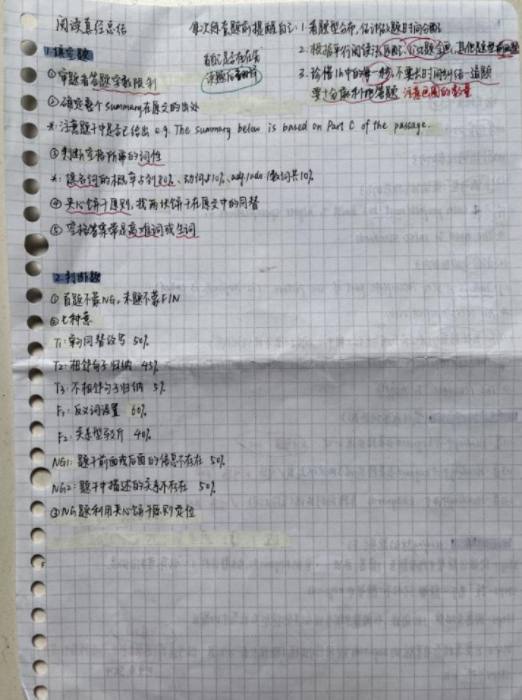 阅读真经总结
每次阅读题前提醒自己: 1. 看题型分布, 估计做题时间分配
2. 根据平行阅读法
3. 珍惜1h中的每一秒, 不要长时间纠结一道题
要合理利用答题 注意范围的数量
1. 填空题
① 审题看答题字数限制
② 确定整个summary在原文的出处
*: 注意题干中是否已给出 e.g. The summary below is based on Part C of the passage.
③ 判断空格所需的词性
*: 填名词的概率占到80%、动词占10%、adj/adv/数词共10%
④ 夹心饼干原则, 找两块饼干在原文中的同替
⑤ 空格答案常是高难词或生词
2. 判断题
① 首题不蒙NG, 末题不蒙F/N
② 七种意
T1: 单词同替改写 50%
T2: 相邻句子归纳 45%
T3: 不相邻句子归纳 5%
F1: 反义词设置 60%
F2: 关系型 40%
NG1: 题干前面或后面的信息不存在 50%
NG2: 题干中描述的关系不存在 50%
③ NG题利用夹心饼干原则定位